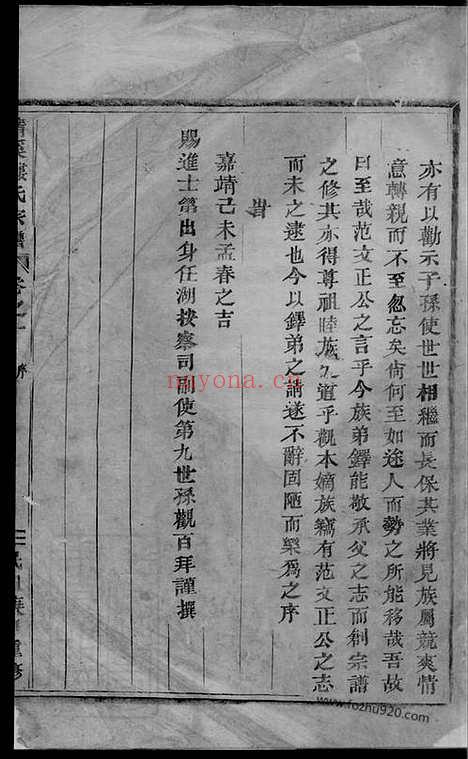 亦有以勸示子孫使世世相繼而長保其業將見族屬競爽情
意轉親而不至忽忘矣尙何至如途人而勢之所能移哉吾故
曰至哉范文正公之言乎今族弟鐸能敬承父之志而創宗譜
之修其亦得尊祖睦族之道乎觀本嫡族竊有范文正公之志
而未之逮也今以鐸弟之請遂不辭固陋而樂爲之序
時
嘉靖己未孟春之吉
賜進士第出身任湖按察司副使第九世孫觀百拜謹撰
氏宗譜 卷之一 序 二 重修
nayona.cn
www.fozhu920.com